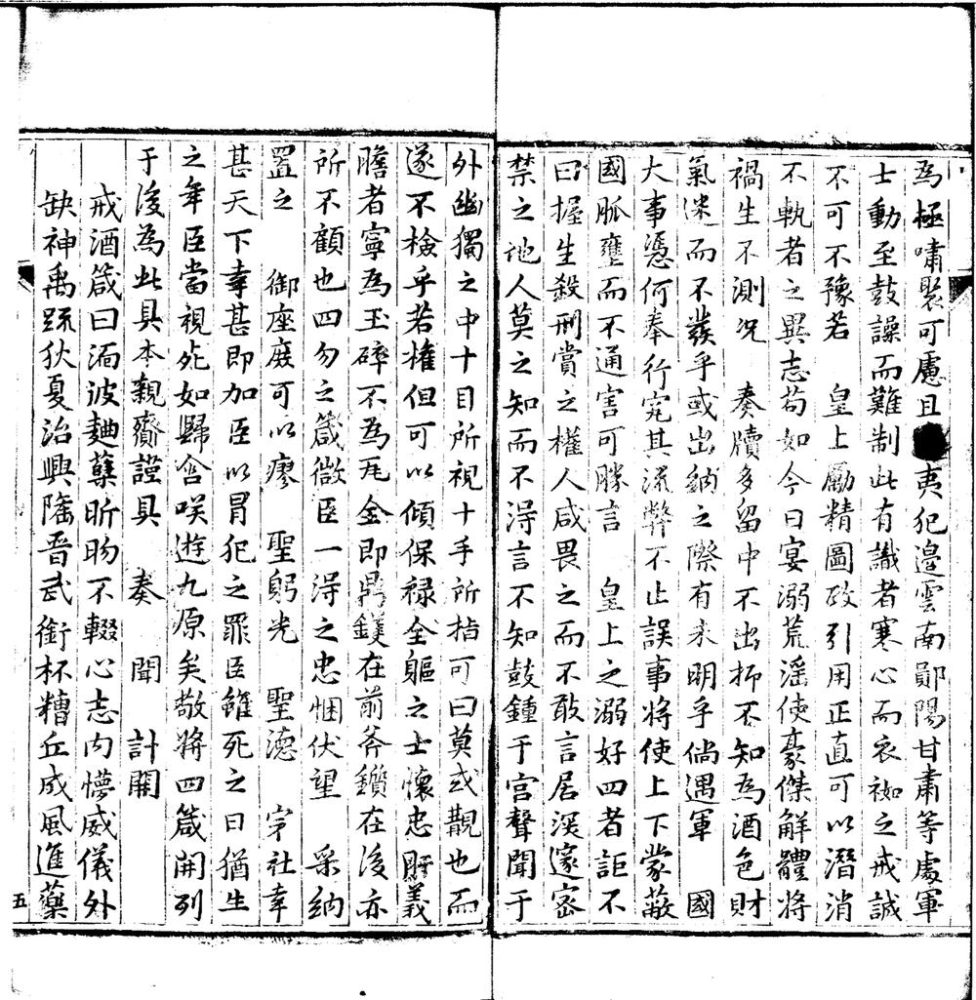 為極嘯聚可慮且夷犯邊雲南鄖陽甘肅等處軍
士動至鼓譟而難制此有識者寒心而衣袽之戒誠
不可不豫若　皇上勵精圖政引用正直可以潛消
不軌者之異志苟如今日宴溺荒滛使豪傑解體將
禍生不測况　奏牘多留中不出抑不知為酒色財
氣迷而不發乎或出納之際有未明乎倘遇軍　國
大事憑何奉行究其流弊不止誤事將使上下蒙蔽
國脈壅而不通害可勝言　皇上之溺好四者詎不
曰握生殺刑賞之權人咸畏之而不敢言居深邃宻
禁之地人莫之知而不淂言不知鼓鍾于宫聲聞于
外幽獨之中十目所視十手所指可曰莫或覯也而
遂不檢乎若權但可以傾保禄全軀之士懷忠肝義
膽者寧為玉碎不為瓦全即鼎鑊在前斧鑕在後亦
所不顧也四勿之箴微臣一淂之忠悃伏望　采納
置之　御座庻可以瘳　聖躬光　聖德　宗社幸
甚天下幸甚即加臣以冒犯之罪臣雖死之日猶生
之年臣當視死如歸含咲遊九原矣敬將四箴開列
于後為此具本親齎謹具　奏　聞　計開
戒酒箴曰湎波麯糵昕昒不輟心志内懜威儀外
缺神禹疏狄夏治興隆晋武銜杯糟丘成風進藥
五